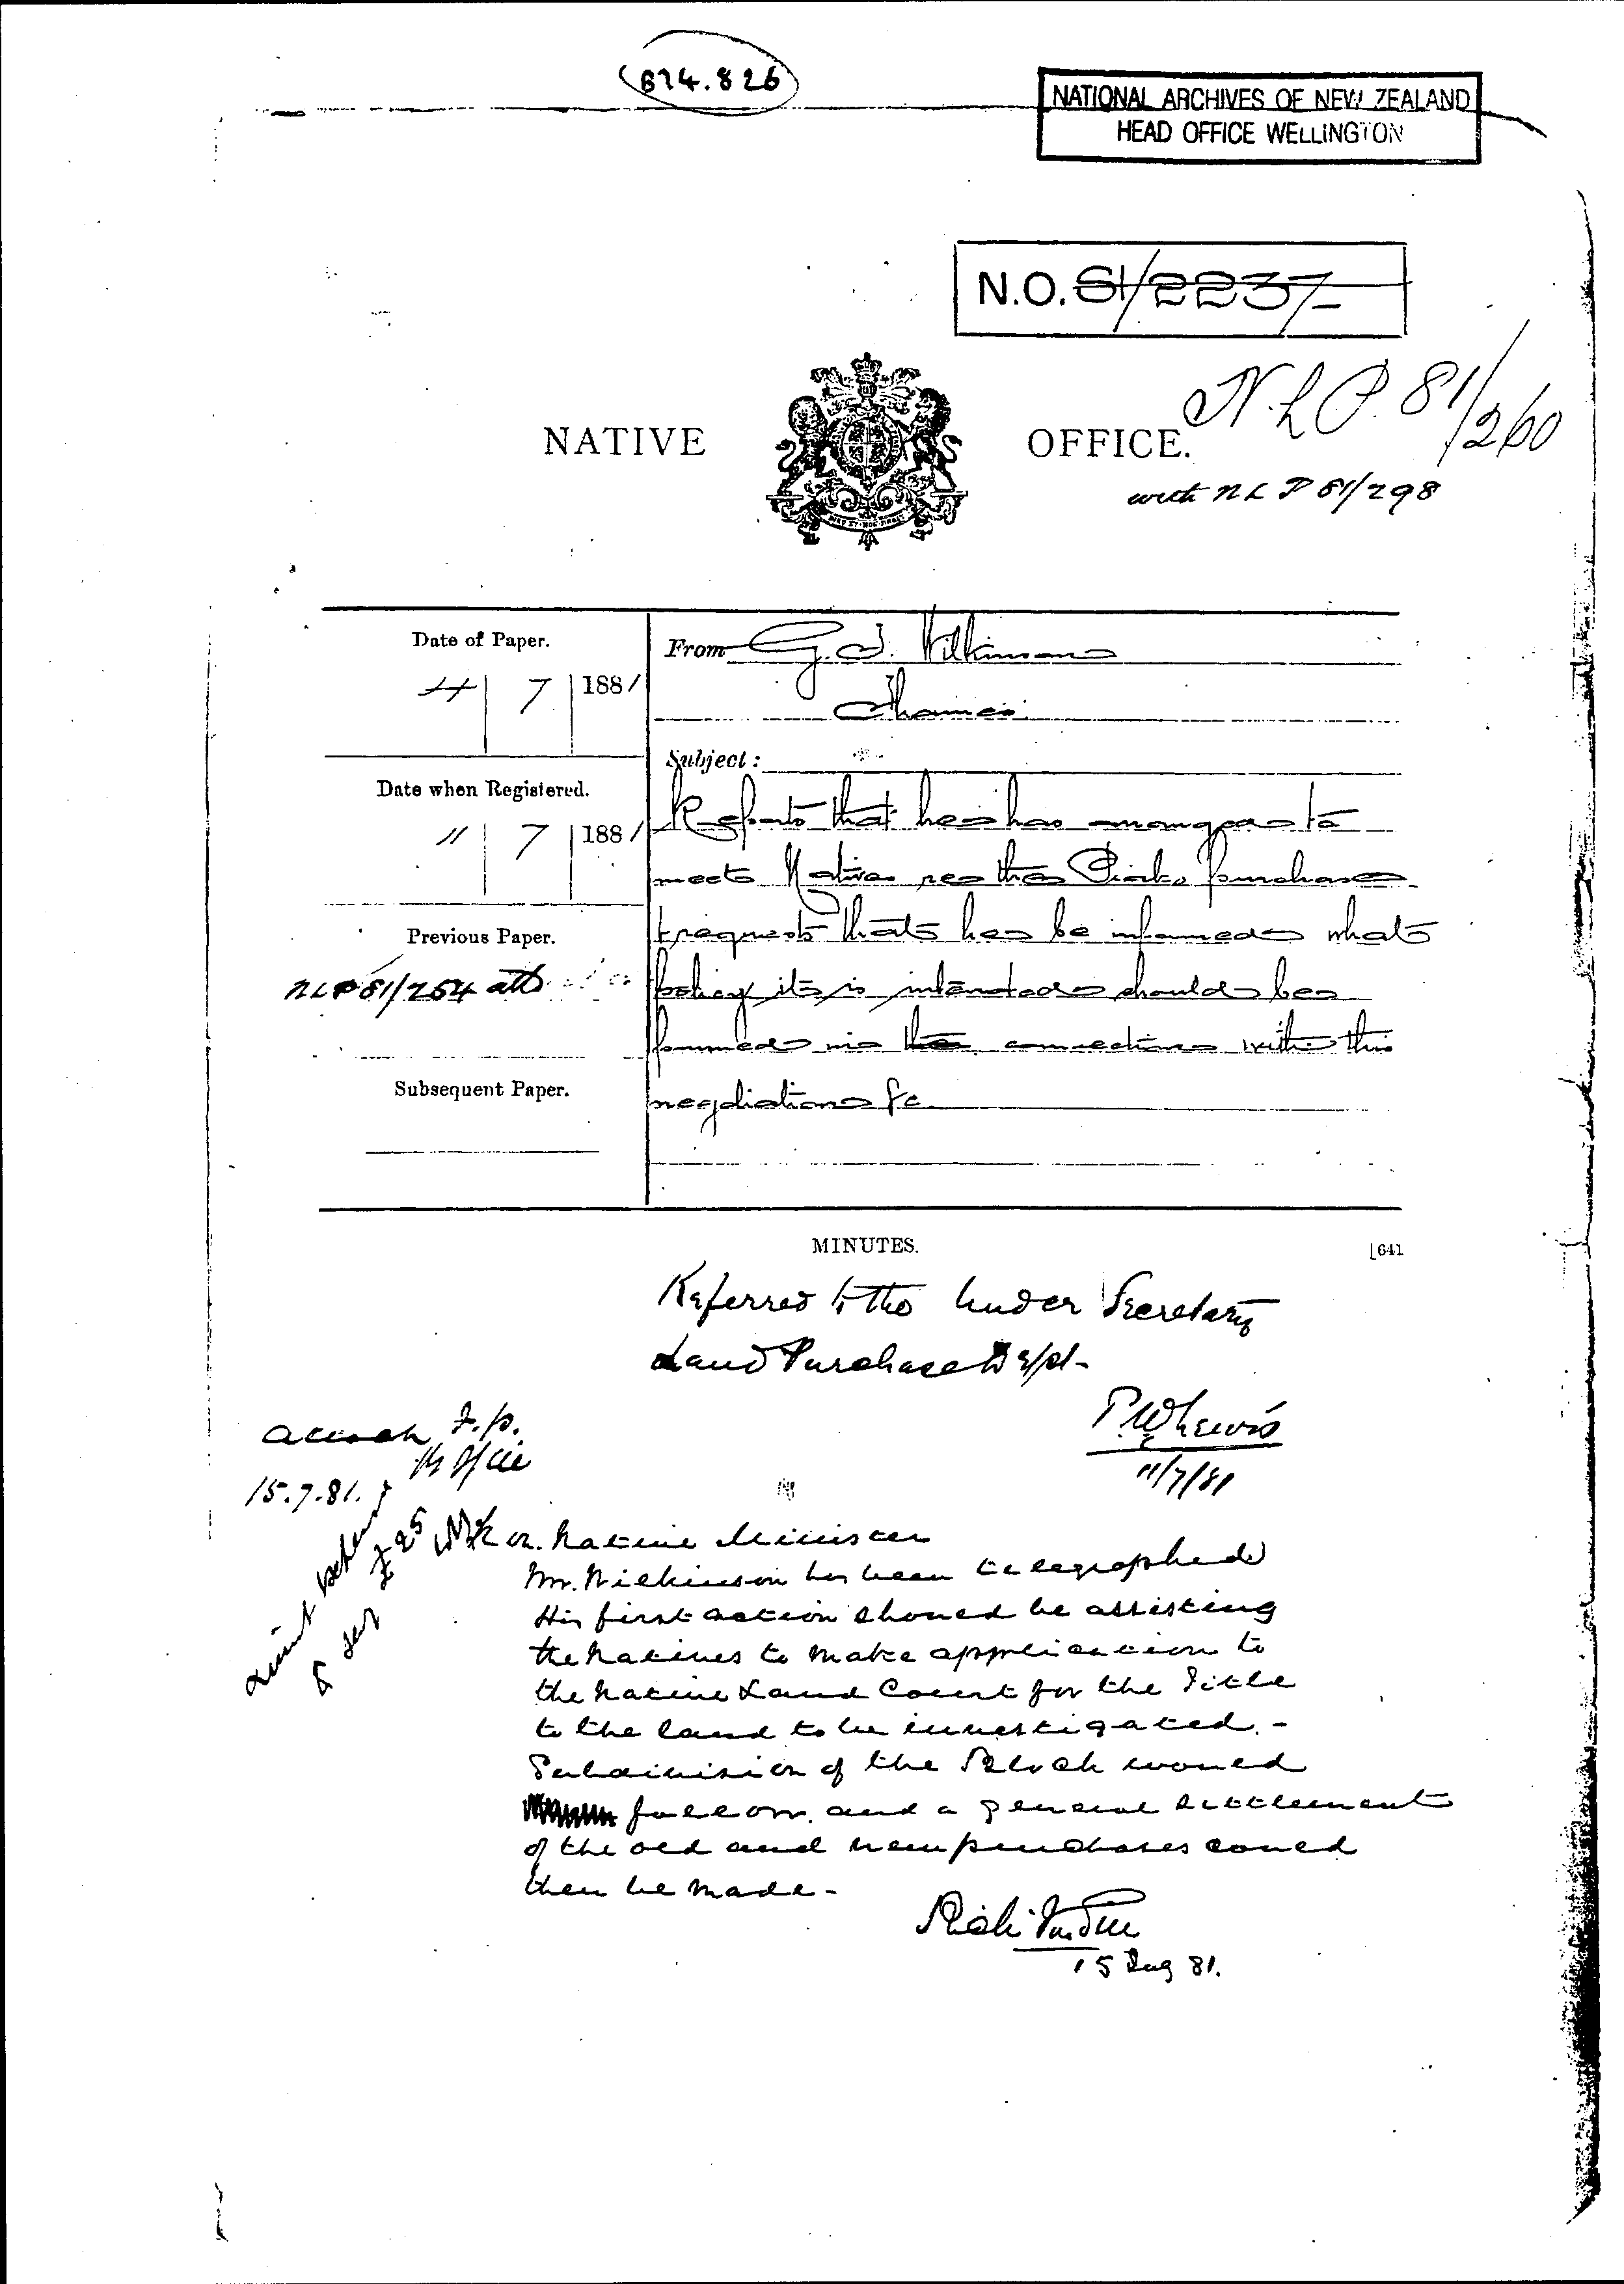 874.826
NATIONAL ARCHIVES OF NEW ZEALAND
HEAD OFFICE WELLINGTON
N.O. 81/2237
N.L.P. 81/260
NATIVE OFFICE.
with NLP 81/298
Date of Paper.
4 7 1881
From G. T. Wilkinson
Thames
Subject:
Date when Registered.
11 7 1881
Reports that he has arranged to
meet Natives re the Piako purchase
& requests that he be informed what
policy it is intended should be
in the connection with this
negotiation &c
Previous Paper.
NLP 81/264 attd
Subsequent Paper.
MINUTES.
[641
Referred to the Under Secretary
Land Purchase Dept-
T.W. Lewis
11/7/81
Attach F.p.
15.7.81.
£25
Hon. Native Minister
Mr. Wilkinson has been telegraphed
His first action should be assisting
the Natives to make application to
the Native Land Court for the Title
to the land to be investigated. -
Subdivision of the Block would
follow. and a general settlement
of the old and new purchases could
then be made -
15 Aug 81.